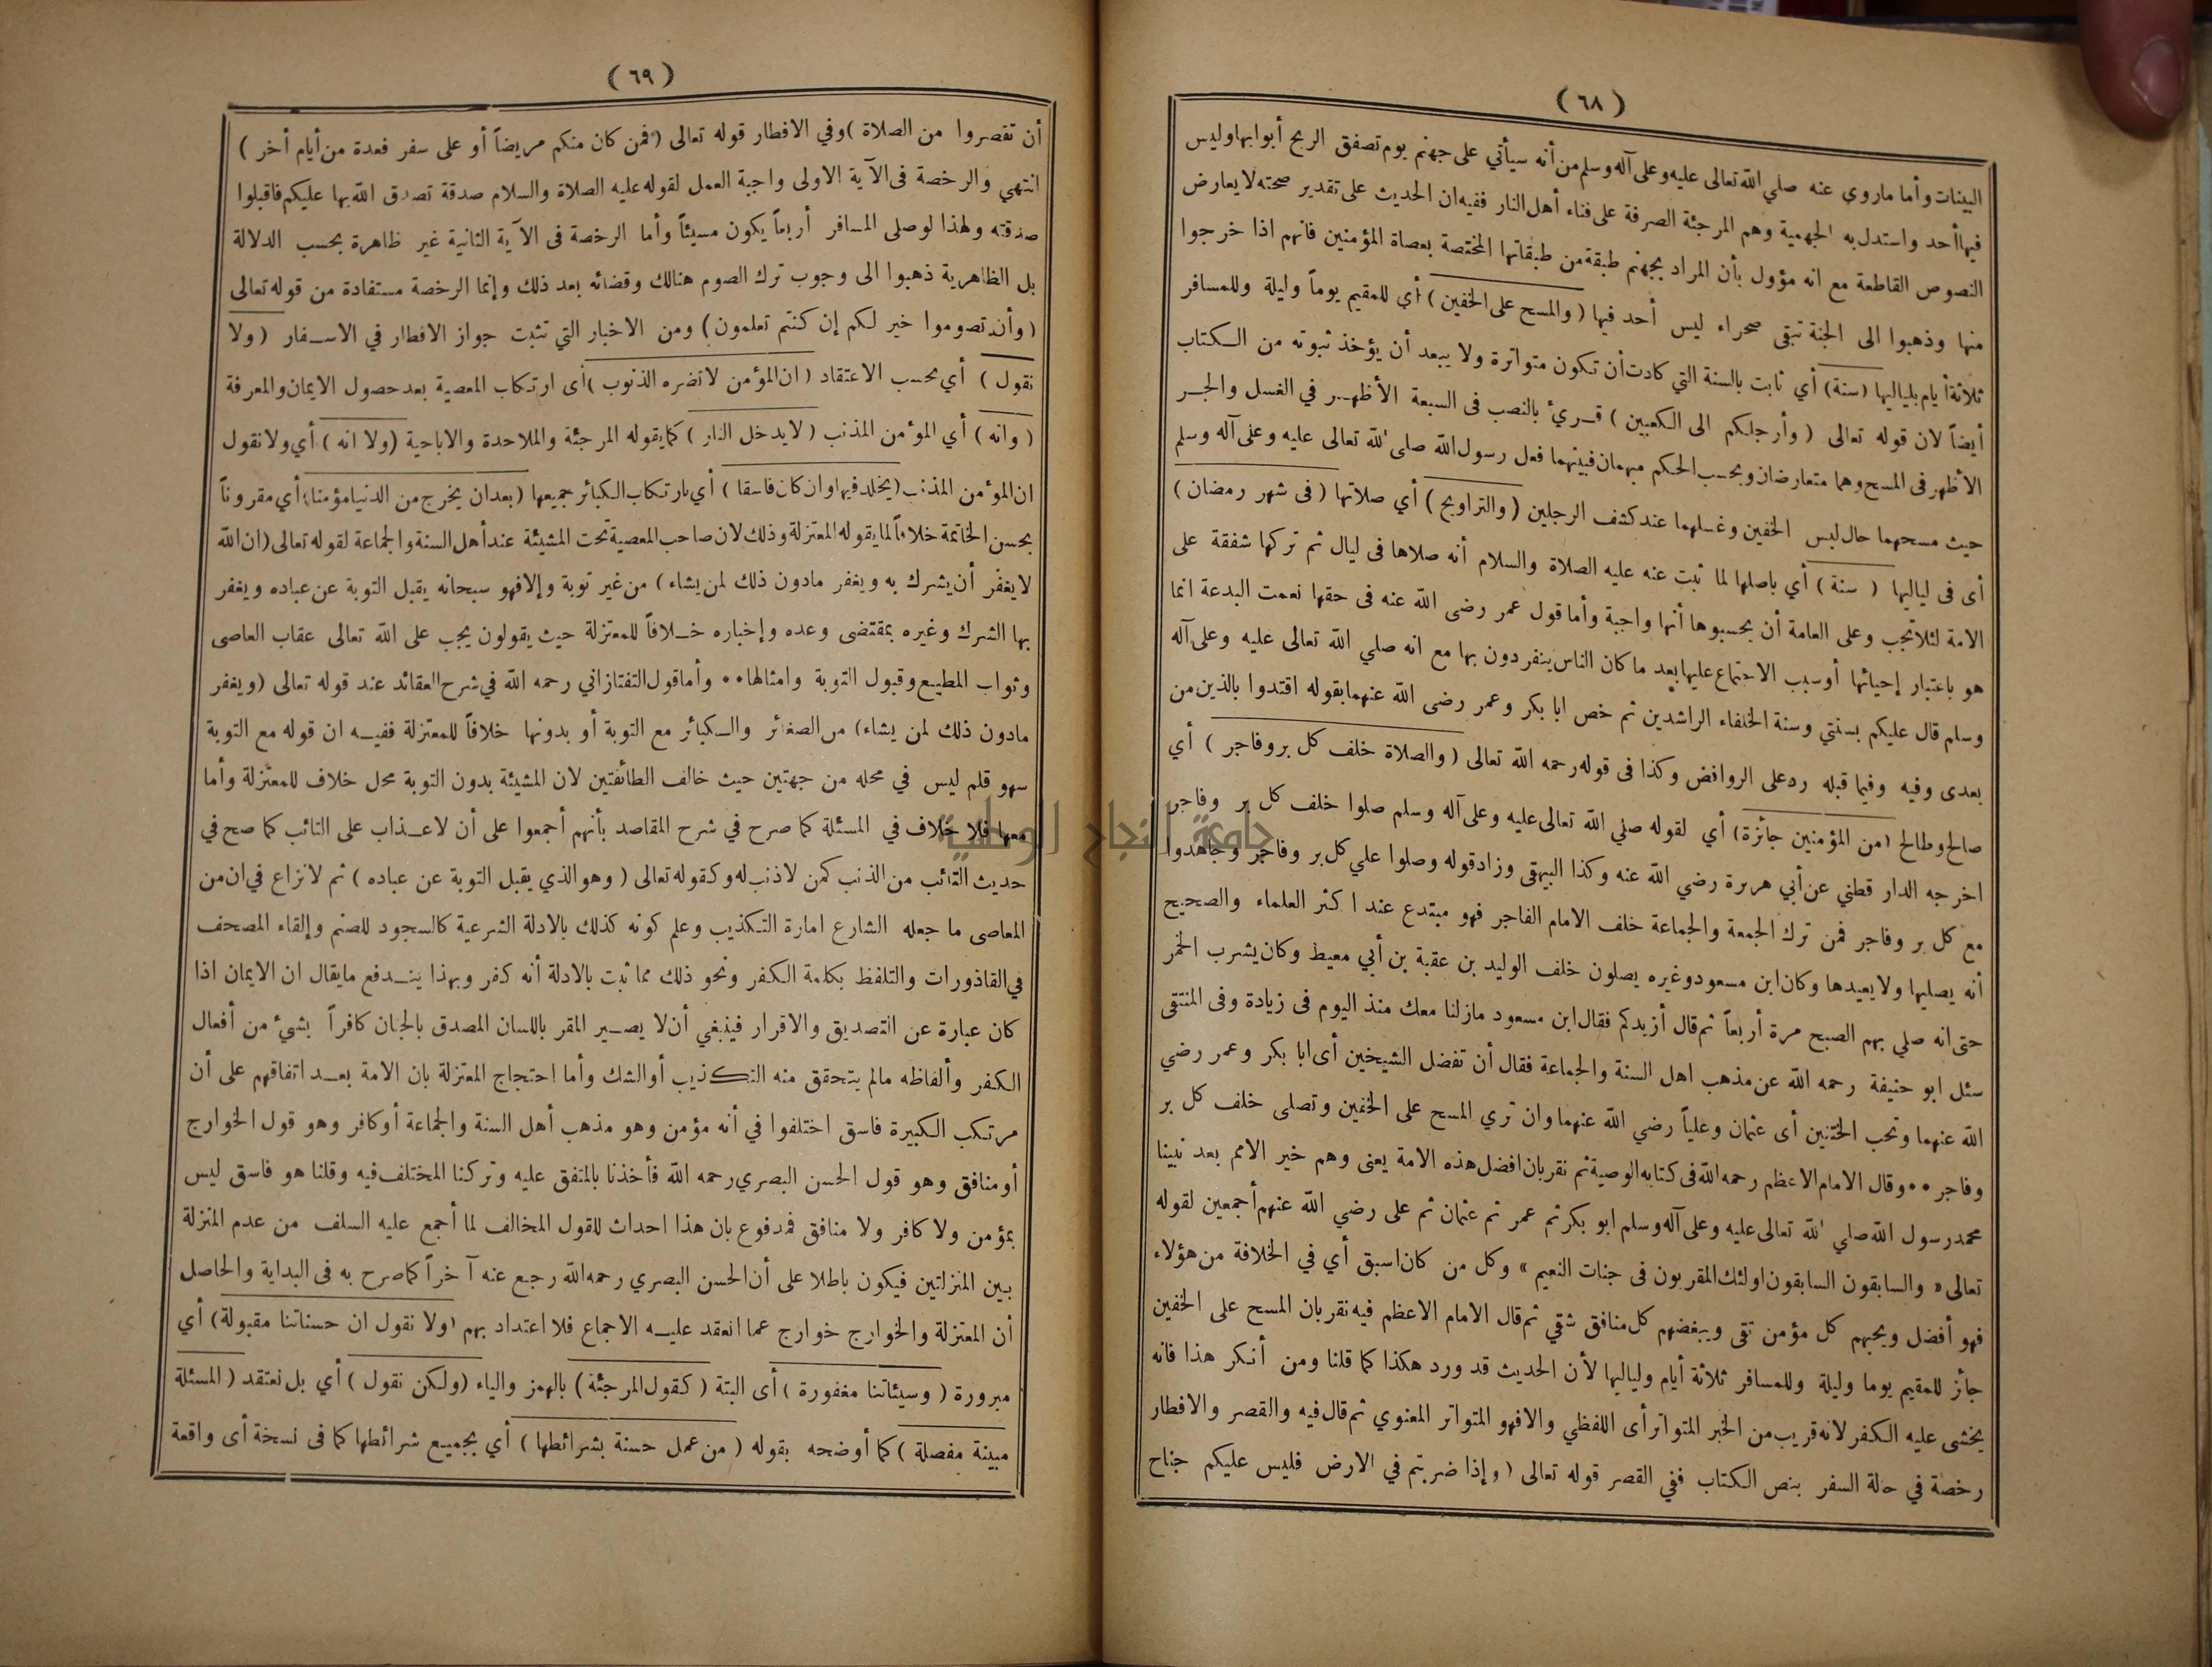 ( ٦٨ )
البينات وأما ماروي عنه صلي الله تعالى عليه وعلى آله وسلم من أنه سيأتي على جهنم يوم تصفق الريح أبوابها وليس
فيها أحد واستدل به الجهمية وهم المرجئة الصرفة على فناء أهل النار ففيه ان الحديث على تقدير صحته لا يعارض
النصوص القاطعة مع انه مؤول بأن المراد بجهنم طبقة من طبقاتها المختصة بعصاة المؤمنين فانهم اذا خرجوا
منها وذهبوا الى الجنة تبقى صحراء ليس أحد فيها ( والمسح على الخفين ) أي للمقيم يوماً وليلة وللمسافر
ثلاثة أيام بلياليها (سنة) أي ثابت بالسنة التي كادت أن تكون متواترة ولا يبعد أن يؤخذ ثبوته من الكتاب
أيضاً لان قوله تعالى ( وأرجلكم الى الكعبين ) قريء بالنصب فى السبعة الأظهر في الغسل والجر
الأظهر فى المسح وهما متعارضان وبحسب الحكم مبهمان فبينهما فعل رسول الله صلى الله تعالى عليه وعلى آله وسلم
حيث مسحهما حال لبس الخفين وغسلهما عند كشف الرجلين ( والتراويح ) أي صلاتها ( فى شهر رمضان )
أى فى لياليها ( سنة ) أي باصلها لما ثبت عنه عليه الصلاة والسلام أنه صلاها فى ليال ثم تركها شفقة على
الامة لئلا تجب وعلى العامة أن يحسبوها أنها واجبة وأما قول عمر رضى الله عنه فى حقها نعمت البدعة انما
هو باعتبار إحيائها أو سبب الاجتماع عليها بعد ما كان الناس ينفردون بها مع انه صلي الله تعالى عليه وعلى آله
وسلم قال عليكم بسنتي وسنة الخلفاء الراشدين ثم خص ابا بكر وعمر رضى الله عنهما بقوله اقتدوا بالذين من
بعدى وفيه وفيما قبله رد على الروافض وكذا فى قوله رحمه الله تعالى ( والصلاة خلف كل بر وفاجر ) أي
صالح وطالح ( من المؤمنين جائزة ) أي لقوله صلي الله تعالى عليه وعلى آله وسلم صلوا خلف كل بر وفاجر
اخرجه الدار قطني عن أبي هريرة رضي الله عنه وكذا البيهقى وزاد قوله وصلوا علي كل بر وفاجر وجاهدوا
مع كل بر وفاجر فمن ترك الجمعة والجماعة خلف الامام الفاجر فهو مبتدع عند اكثر العلماء والصحيح
أنه يصليها ولا يعيدها وكان ابن مسعود وغيره يصلون خلف الوليد بن عقبة بن أبي معيط وكان يشرب الخمر
حتى انه صلي بهم الصبح مرة أربعاً ثم قال أزيدكم فقال ابن مسعود مازلنا معك منذ اليوم فى زيادة وفى المنتقى
سئل ابو حنيفة رحمه الله عن مذهب اهل السنة والجماعة فقال أن تفضل الشيخين أى ابا بكر وعمر رضي
الله عنهما وتحب الختنين أى عثمان وعلياً رضي الله عنهما وان تري المسح على الخفين وتصلى خلف كل بر
وفاجر •• وقال الامام الاعظم رحمه الله فى كتابه الوصية ثم نقر بان افضل هذه الامة يعنى وهم خير الامم بعد نبينا
محمد رسول الله صلي الله تعالى عليه وعلى آله وسلم ابو بكر ثم عمر ثم عثمان ثم على رضي الله عنهم أجمعين لقوله
تعالى « والسابقون السابقون اولئك المقربون فى جنات النعيم » وكل من كان اسبق أي في الخلافة من هؤلاء
فهو أفضل ويحبهم كل مؤمن تقى ويبغضهم كل منافق شقي ثم قال الامام الاعظم فيه نقر بان المسح على الخفين
جائز للمقيم يوما وليلة وللمسافر ثلاثة أيام ولياليها لأن الحديث قد ورد هكذا كما قلنا ومن أنكر هذا فانه
يخشى عليه الكفر لانه قريب من الخبر المتواتر أى اللفظي والا فهو المتواتر المعنوي ثم قال فيه والقصر والافطار
رخصة في حالة السفر بنص الكتاب ففي القصر قوله تعالى ( وإذا ضربتم في الارض فليس عليكم جناح
( ٦٩ )
أن تقصروا من الصلاة ) وفي الافطار قوله تعالى ( فمن كان منكم مريضاً أو على سفر فعدة من أيام أخر )
انتهي والرخصة فى الآية الاولى واجبة العمل لقوله عليه الصلاة والسلام صدقة تصدق الله بها عليكم فاقبلوا
صدقته ولهذا لو صلى المسافر أربعاً يكون مسيئاً وأما الرخصة فى الآية الثانية غير ظاهرة بحسب الدلالة
بل الظاهرية ذهبوا الى وجوب ترك الصوم هنالك وقضائه بعد ذلك وإنما الرخصة مستفادة من قوله تعالى
( وأن تصوموا خير لكم إن كنتم تعلمون ) ومن الاخبار التي تثبت جواز الافطار في الاسفار ( ولا
نقول ) أي بحسب الاعتقاد ( ان المؤمن لا تضره الذنوب ) أى ارتكاب المعصية بعد حصول الايمان والمعرفة
( وانه ) أي المؤمن المذنب ( لا يدخل النار ) كما يقوله المرجئة والملاحدة والاباحية ( ولا انه ) أي ولا نقول
ان المؤمن المذنب ( يخلد فيها وان كان فاسقا ) أي بارتكاب الكبائر جميعها ( بعد ان يخرج من الدنيا مؤمنا ) أي مقروناً
بحسن الخاتمة خلافاً لما يقوله المعتزلة وذلك لان صاحب المعصية تحت المشيئة عند أهل السنة والجماعة لقوله تعالى ( ان الله
لا يغفر أن يشرك به ويغفر مادون ذلك لمن يشاء ) من غير توبة وإلا فهو سبحانه يقبل التوبة عن عباده ويغفر
بها الشرك وغيره بمقتضى وعده وإخباره خلافاً للمعتزلة حيث يقولون يجب على الله تعالى عقاب العاصى
وثواب المطيع وقبول التوبة وامثالها •• وأما قول التفتازاني رحمه الله في شرح العقائد عند قوله تعالى ( ويغفر
مادون ذلك لمن يشاء ) من الصغائر والكبائر مع التوبة أو بدونها خلافاً للمعتزلة ففيه ان قوله مع التوبة
سهو قلم ليس في محله من جهتين حيث خالف الطائفتين لان المشيئة بدون التوبة محل خلاف للمعتزلة وأما
معها فلا خلاف في المسئلة كما صرح في شرح المقاصد بأنهم أجمعوا على أن لا عذاب على التائب كما صح في
حديث التائب من الذنب كمن لا ذنب له وكقوله تعالى ( وهو الذي يقبل التوبة عن عباده ) ثم لا نزاع في ان من
المعاصى ما جعله الشارع امارة التكذيب وعلم كونه كذلك بالادلة الشرعية كالسجود للصنم وإلقاء المصحف
في القاذورات والتلفظ بكلمة الكفر ونحو ذلك مما ثبت بالادلة أنه كفر وبهذا يندفع مايقال ان الايمان اذا
كان عبارة عن التصديق والاقرار فينبغي أن لا يصير المقر باللسان المصدق بالجنان كافراً بشيء من أفعال
الكفر وألفاظه مالم يتحقق منه التكذيب أو الشك وأما احتجاج المعتزلة بان الامة بعد اتفاقهم على أن
مرتكب الكبيرة فاسق اختلفوا في أنه مؤمن وهو مذهب أهل السنة والجماعة أو كافر وهو قول الخوارج
أو منافق وهو قول الحسن البصري رحمه الله فأخذنا بالمتفق عليه وتركنا المختلف فيه وقلنا هو فاسق ليس
بمؤمن ولا كافر ولا منافق فمدفوع بان هذا احداث للقول المخالف لما أجمع عليه السلف من عدم المنزلة
بين المنزلتين فيكون باطلا على أن الحسن البصري رحمه الله رجع عنه آخراً كما صرح به فى البداية والحاصل
أن المعتزلة والخوارج خوارج عما انعقد عليه الاجماع فلا اعتداد بهم ( ولا نقول ان حسناتنا مقبولة ) أي
مبرورة ( وسيئاتنا مغفورة ) أى البتة ( كقول المرجئة ) بالهمز والياء ( ولكن نقول ) أي بل نعتقد ( المسئلة
مبينة مفصلة ) كما أوضحه بقوله ( من عمل حسنة بشرائطها ) أي بجميع شرائطها كما فى نسخة أى واقعة
جامعة النجاح الوطنية